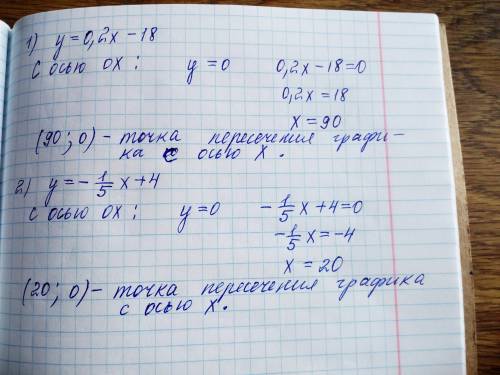 1) y = 0,2x − 18
С осью ОХ: y = 0 0,2x − 18 = 0
0,2x = 18
x = 90
(90; 0) − точка пересечения графи-
ка с осью X.
2) y = − 1/5 x + 4
С осью ОХ: y = 0 − 1/5 x + 4 = 0
− 1/5 x = −4
x = 20
(20; 0) − точка пересечения графика
с осью X.